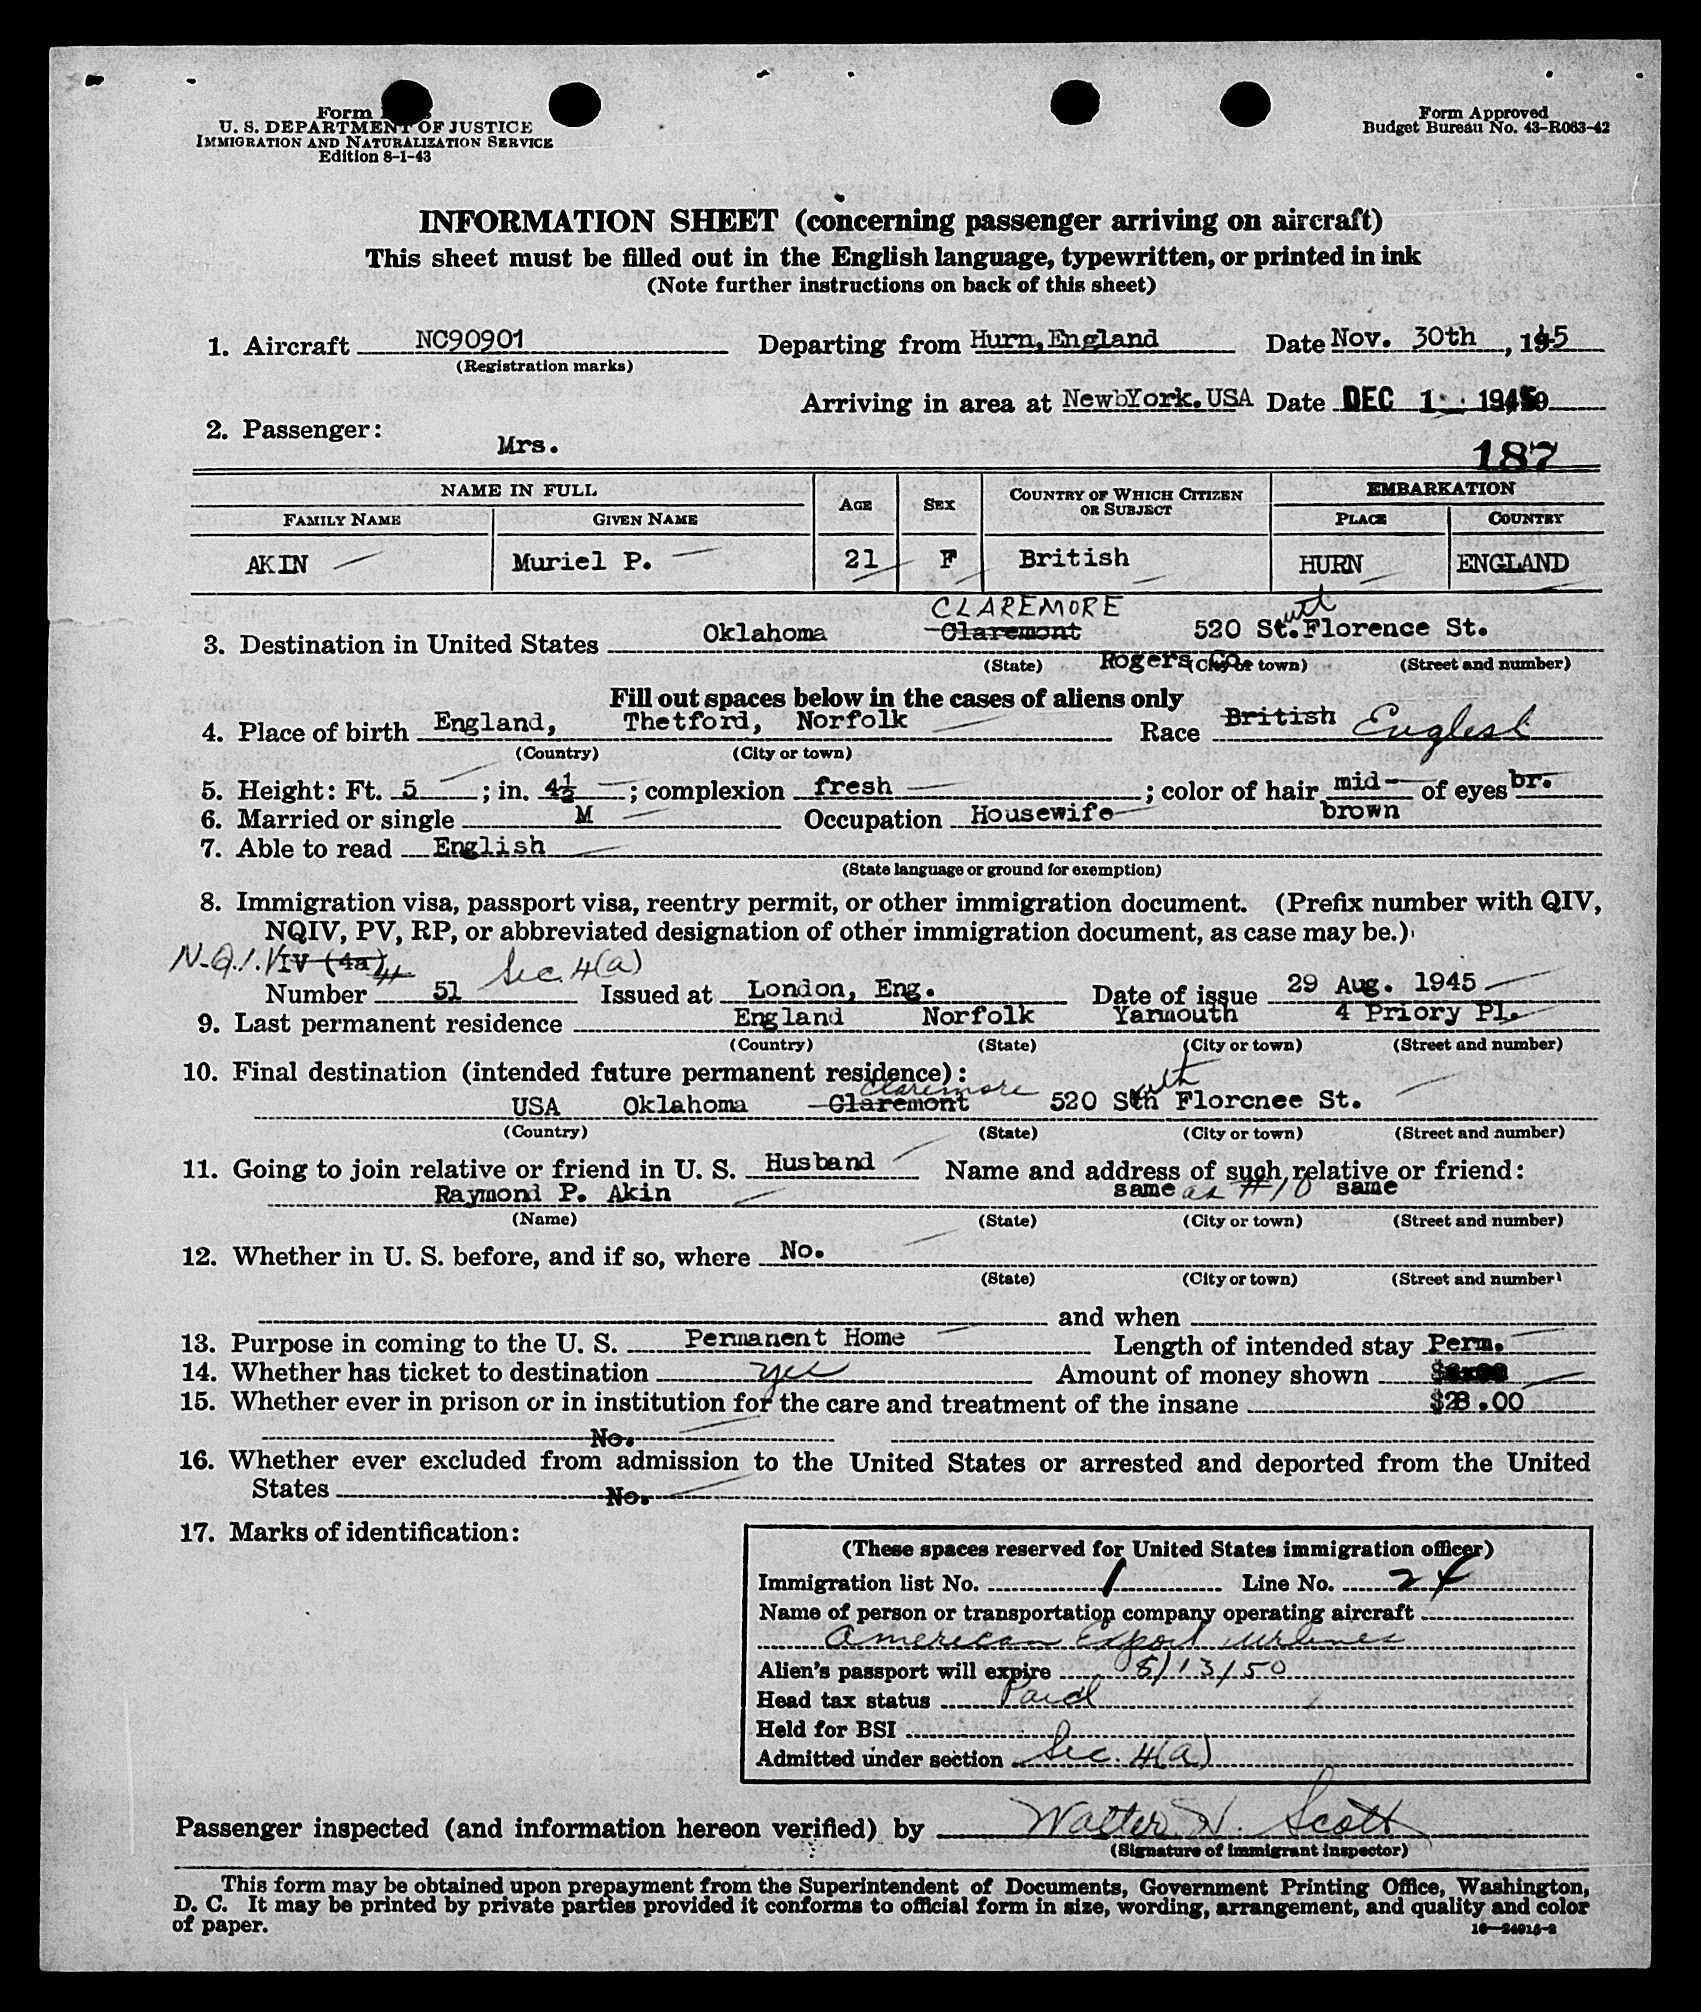 Form
U. S. DEPARTMENT OF JUSTICE
IMMIGRATION AND NATURALIZATION SERVICE
Edition 8-1-43
Form Approved
Budget Bureau No. 43-R063-42
INFORMATION SHEET (concerning passenger arriving on aircraft)
This sheet must be filled out in the English language, typewritten, or printed in ink
(Note further instructions on back of this sheet)
1. Aircraft NC90901 Departing from Hurn,England Date Nov. 30th, 1945
(Registration marks)
Arriving in area at NewbYork.USA Date DEC 1 1945
2. Passenger:
Mrs.
187
NAME IN FULL AGE SEX COUNTRY OF WHICH CITIZEN OR SUBJECT EMBARKATION
FAMILY NAME GIVEN NAME PLACE COUNTRY
AKIN Muriel P. 21 F British HURN ENGLAND
CLAREMORE
3. Destination in United States Oklahoma Claremont 520 St. Florence St.
(State) Rogers Co. (City or town) (Street and number)
Fill out spaces below in the cases of aliens only
4. Place of birth England, Thetford, Norfolk Race British English
(Country) (City or town)
5. Height: Ft. 5; in. 4½; complexion fresh; color of hair mid- of eyes br.
brown
6. Married or single M Occupation Housewife
7. Able to read English
(State language or ground for exemption)
8. Immigration visa, passport visa, reentry permit, or other immigration document. (Prefix number with QIV,
NQIV, PV, RP, or abbreviated designation of other immigration document, as case may be.)
N.Q.I.V IV (4a) Sec. 4(a)
Number 51 Issued at London, Eng. Date of issue 29 Aug. 1945
9. Last permanent residence England Norfolk Yarmouth 4 Priory Pl.
(Country) (State) (City or town) (Street and number)
10. Final destination (intended future permanent residence):
Claremore
USA Oklahoma Claremont 520 Sth Florcnee St.
(Country) (State) (City or town) (Street and number)
11. Going to join relative or friend in U. S. Husband Name and address of such relative or friend:
Raymond P. Akin same as #10 same
(Name) (State) (City or town) (Street and number)
12. Whether in U. S. before, and if so, where No.
(State) (City or town) (Street and number)
and when
13. Purpose in coming to the U. S. Permanent Home Length of intended stay Perm.
14. Whether has ticket to destination yes Amount of money shown
15. Whether ever in prison or in institution for the care and treatment of the insane $28.00
No.
16. Whether ever excluded from admission to the United States or arrested and deported from the United
States No.
17. Marks of identification:
(These spaces reserved for United States immigration officer)
Immigration list No. 1 Line No. 24
Name of person or transportation company operating aircraft
American Export Airlines
Alien's passport will expire 8/13/50
Head tax status Paid
Held for BSI
Admitted under section Sec. 4(a)
Passenger inspected (and information hereon verified) by Walter H. Scott
(Signature of immigrant inspector)
This form may be obtained upon prepayment from the Superintendent of Documents, Government Printing Office, Washington,
D. C. It may be printed by private parties provided it conforms to official form in size, wording, arrangement, and quality and color
of paper.